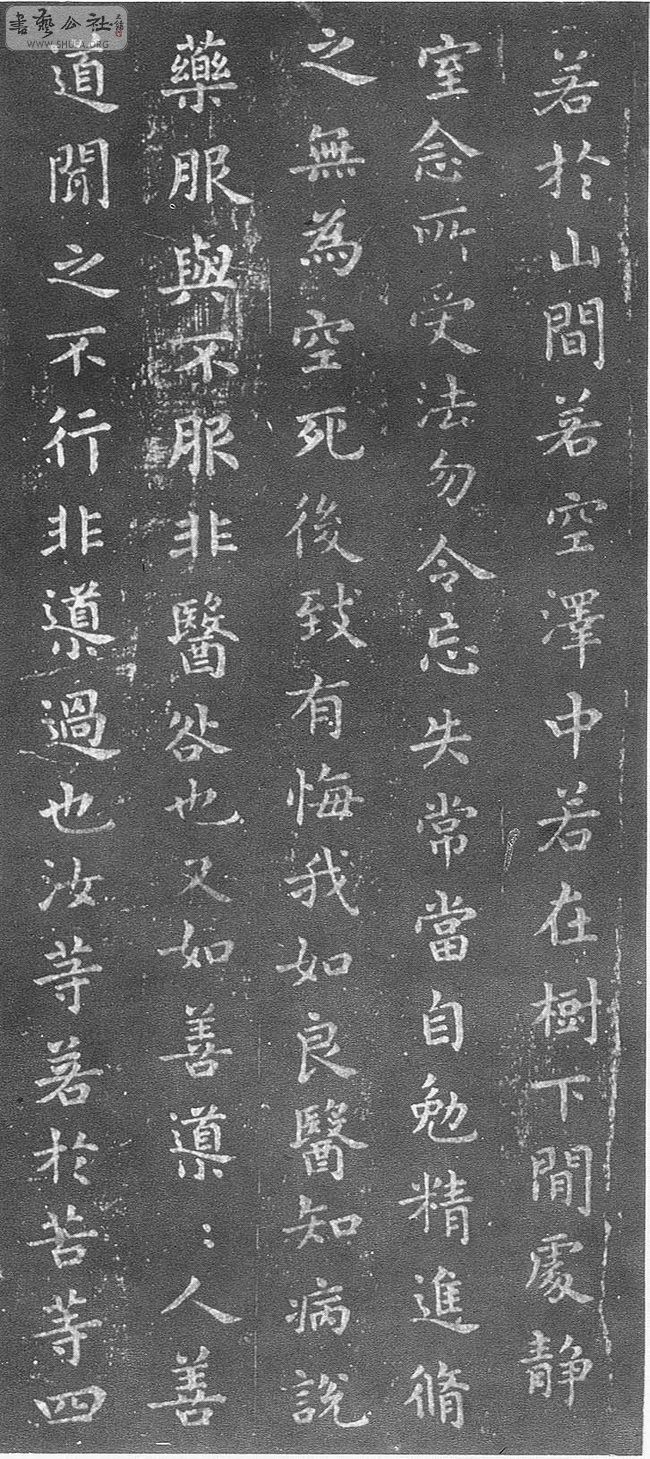 若於山間若空澤中若在樹下閒處静
室念所受法勿令忘失常當自勉精進脩
之無為空死後致有悔我如良醫知病說
藥服與不服非醫咎也又如善導：人善
道聞之不行非導過也汝等若於苦等四
書藝公社
WWW.SHUFA.ORG